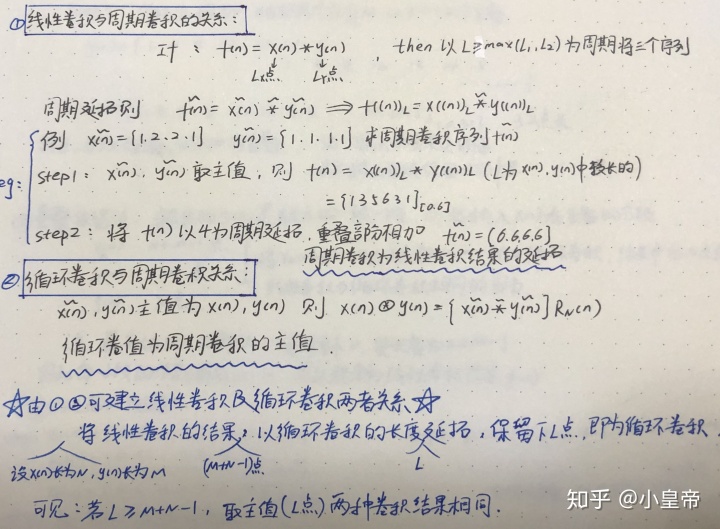 ①线性卷积与周期卷积的关系：
If : t(n) = x(n) * y(n) then 以 L≥max(L₁,L₂) 为周期将三个序列
Lx点 Ly点
周期延拓则 t̃(n) = x̃(n) *̃ ỹ(n) ⟹ t((n))L = x((n))L *̃ y((n))L
eg:
例 x̃(n) = {1.2.2.1} ỹ(n) = {1.1.1.1} 求周期卷积序列 t̃(n)
step1：x̃(n). ỹ(n) 取主值，则 t(n) = x((n))L * y((n))L (L为x(n), y(n)中较长的)
= {135631}[0.6]
step2：将 t(n) 以4为周期延拓，重叠部分相加 t̃(n) = {6.6.6.6}
周期卷积为线性卷积结果的延拓
②循环卷积与周期卷积关系：
x̃(n), ỹ(n)主值为 x(n), y(n) 则 x(n) ⊛ y(n) = { x̃(n) *̃ ỹ(n)] RN(n)
循环卷值为周期卷积的主值
☆由①②可建立线性卷积及循环卷积两者关系☆
将线性卷积的结果，以循环卷积的长度延拓，保留下L点，即为循环卷积.
设x(n)长为N, y(n)长为M (M+N-1)点 L
可见：若 L≥M+N-1，取主值(L点)两种卷积结果相同.
知乎 @小皇帝